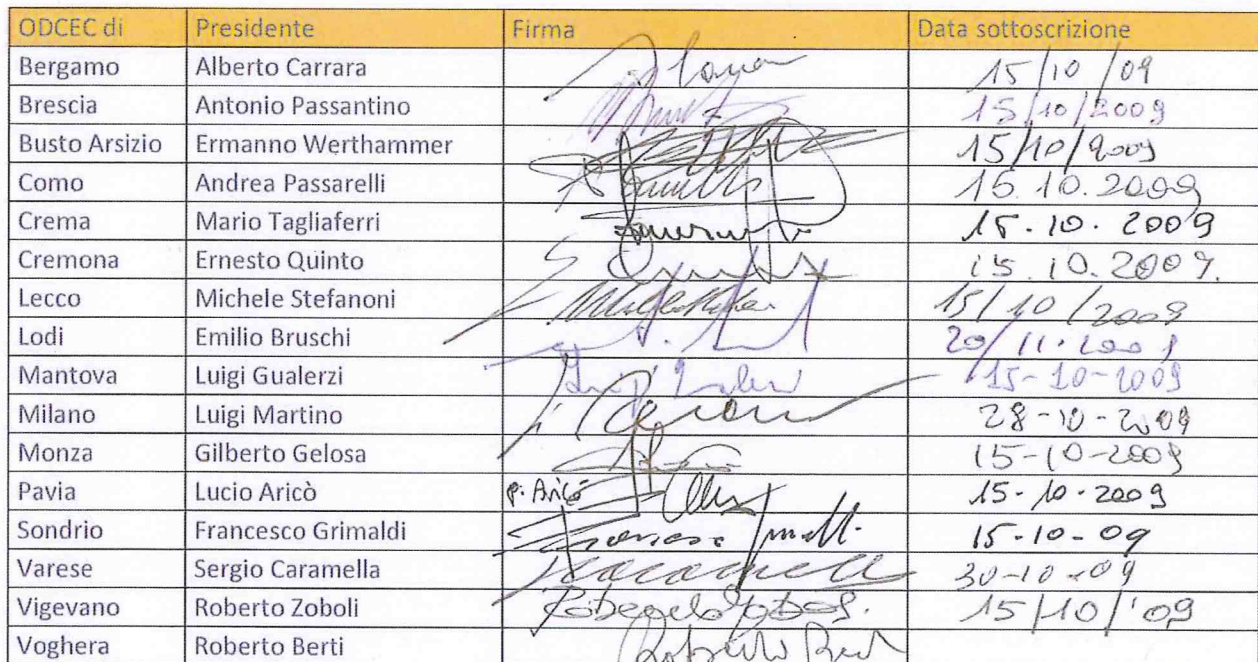 ODCEC di Presidente Firma Data sottoscrizione
Bergamo Alberto Carrara 15/10/09
Brescia Antonio Passantino 15/10/2009
Busto Arsizio Ermanno Werthammer 15/10/2009
Como Andrea Passarelli 15.10.2009
Crema Mario Tagliaferri 15.10.2009
Cremona Ernesto Quinto 15.10.2009.
Lecco Michele Stefanoni 15/10/2009
Lodi Emilio Bruschi 20/11.2009
Mantova Luigi Gualerzi 15-10-2009
Milano Luigi Martino 28-10-2009
Monza Gilberto Gelosa 15-10-2009
Pavia Lucio Aricò p. Aricò 15-10-2009
Sondrio Francesco Grimaldi 15-10-09
Varese Sergio Caramella 30-10-09
Vigevano Roberto Zoboli 15/10/'09
Voghera Roberto Berti